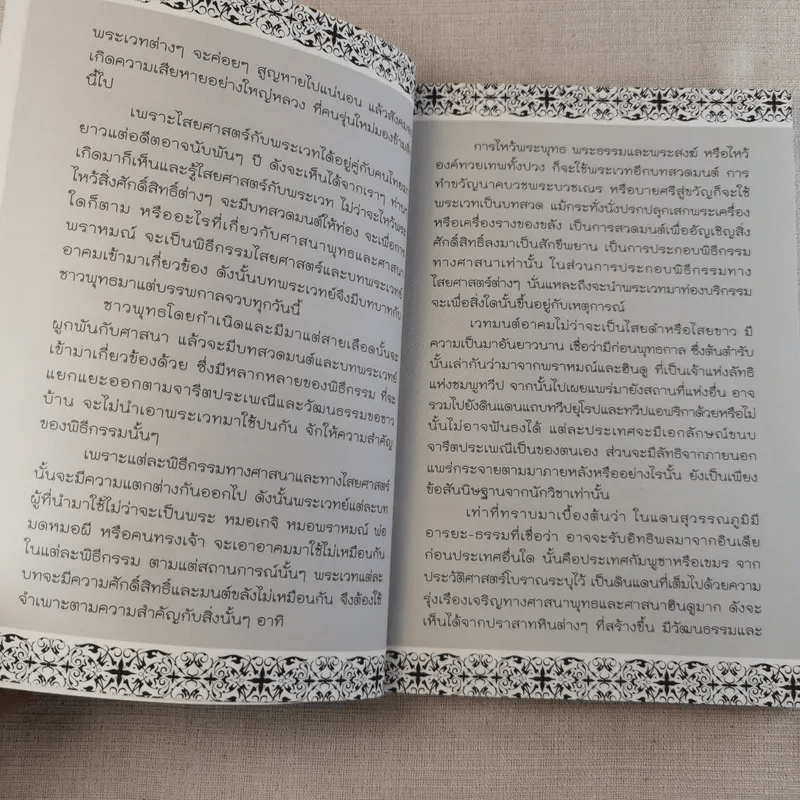 พระเวทต่างๆ จะค่อยๆ สูญหายไปแน่นอน แล้วสังคม
เกิดความเสียหายอย่างใหญ่หลวง ที่คนรุ่นใหม่มองข้าม
นี้ไป
เพราะไสยศาสตร์กับพระเวทได้อยู่คู่กับคนไทยมา
ยาวแต่อดีตอาจนับพันๆ ปี ดังจะเห็นได้จากเราๆ ท่านๆ
เกิดมาก็เห็นและรู้ไสยศาสตร์กับพระเวท ไม่ว่าจะไหว้พระ
ไหว้สิ่งศักดิ์สิทธิ์ต่างๆ จะมีบทสวดมนต์ให้ท่อง จะเพื่อการ
ใดก็ตาม หรืออะไรที่เกี่ยวกับศาสนาพุทธและศาสนา
พราหมณ์ จะเป็นพิธีกรรมไสยศาสตร์และบทพระเวทย์
อาคมเข้ามาเกี่ยวข้อง ดังนั้นบทพระเวทย์จึงมีบทบาทกับ
ชาวพุทธมาแต่บรรพกาลจวบทุกวันนี้
ชาวพุทธโดยกำเนิดและมีมาแต่สายเลือดนั้นจะ
ผูกพันกับศาสนา แล้วจะมีบทสวดมนต์และบทพระเวทย์
เข้ามาเกี่ยวข้องด้วย ซึ่งมีหลากหลายของพิธีกรรม ที่จะ
แยกแยะออกตามจารีตประเพณีและวัฒนธรรมของชาว
บ้าน จะไม่นำเอาพระเวทมาใช้ปนกัน จักให้ความสำคัญ
ของพิธีกรรมนั้นๆ
เพราะแต่ละพิธีกรรมทางศาสนาและทางไสยศาสตร์
นั้นจะมีความแตกต่างกันออกไป ดังนั้นพระเวทย์แต่ละบท
ผู้ที่นำมาใช้ไม่ว่าจะเป็นพระ หมอเกจิ หมอพราหมณ์ พ่อ
มดหมอผี หรือคนทรงเจ้า จะเอาอาคมมาใช้ไม่เหมือนกัน
ในแต่ละพิธีกรรม ตามแต่สถานการณ์นั้นๆ พระเวทแต่ละ
บทจะมีความศักดิ์สิทธิ์และมนต์ขลังไม่เหมือนกัน จึงต้องใช้
จำเพาะตามความสำคัญกับสิ่งนั้นๆ อาทิ
การไหว้พระพุทธ พระธรรมและพระสงฆ์ หรือไหว้
องค์ทวยเทพทั้งปวง ก็จะใช้พระเวทอีกบทสวดมนต์ การ
ทำขวัญนาคบวชพระบวชเณร หรือบายศรีสู่ขวัญก็จะใช้
พระเวทเป็นบทสวด แม้กระทั่งนั่งปรกปลุกเสกพระเครื่อง
หรือเครื่องรางของขลัง เป็นการสวดมนต์เพื่ออัญเชิญสิ่ง
ศักดิ์สิทธิ์ลงมาเป็นสักขีพยาน เป็นการประกอบพิธีกรรม
ทางศาสนาเท่านั้น ในส่วนการประกอบพิธีกรรมทาง
ไสยศาสตร์ต่างๆ นั่นแหละถึงจะนำพระเวทมาท่องบริกรรม
จะเพื่อสิ่งใดนั้นขึ้นอยู่กับเหตุการณ์
เวทมนต์อาคมไม่ว่าจะเป็นไสยดำหรือไสยขาว มี
ความเป็นมาอันยาวนาน เชื่อว่ามีก่อนพุทธกาล ซึ่งต้นตำรับ
นั้นเล่ากันว่ามาจากพราหมณ์และฮินดู ที่เป็นเจ้าแห่งลัทธิ
แห่งชมพูทวีป จากนั้นไปเผยแพร่มายังสถานที่แห่งอื่น อาจ
รวมไปยังดินแดนแถบทวีปยุโรปและทวีปแอฟริกาด้วยหรือไม่
นั้นไม่อาจฟันธงได้ แต่ละประเทศจะมีเอกลักษณ์ขนบ
จารีตประเพณีเป็นของตนเอง ส่วนจะมีลัทธิจากภายนอก
แพร่กระจายตามมาภายหลังหรืออย่างไรนั้น ยังเป็นเพียง
ข้อสันนิษฐานจากนักวิชาเท่านั้น
เท่าที่ทราบมาเบื้องต้นว่า ในแดนสุวรรณภูมิมี
อารยะ-ธรรมที่เชื่อว่า อาจจะรับอิทธิพลมาจากอินเดีย
ก่อนประเทศอื่นใด นั้นคือประเทศกัมพูชาหรือเขมร จาก
ประวัติศาสตร์โบราณระบุไว้ เป็นดินแดนที่เต็มไปด้วยความ
รุ่งเรืองเจริญทางศาสนาพุทธและศาสนาฮินดูมาก ดังจะ
เห็นได้จากปราสาทหินต่างๆ ที่สร้างขึ้น มีวัฒนธรรมและ